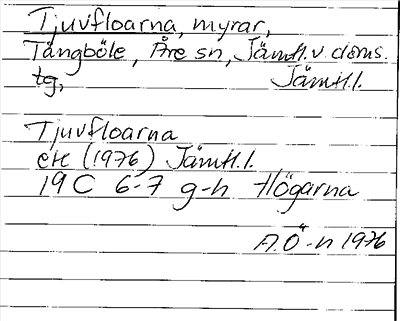 Tjuvfloarna, myrar,
Tångböle, Åre sn, Jämtl. v. doms.
tg, Jämtl. l.
Tjuvfloarna
ek (1976) Jämtl. l.
19 C 6-7 g-h Högarna
A.Ö-n 1976